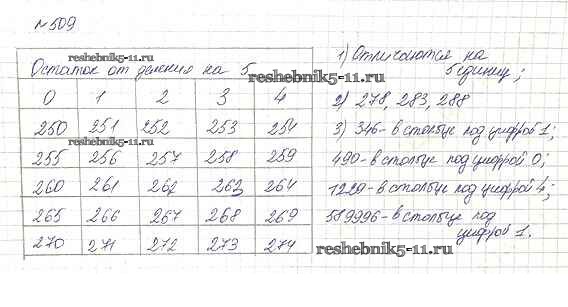 №509
reshebnik5-11.ru
Остаток от деления на 5
reshebnik5-11.ru
0 1 2 3 4
250 251 252 253 254
reshebnik5-11.ru
255 256 257 258 259
260 261 262 263 264
265 266 267 268 269
270 271 272 273 274
1) Отличаются на
5 единиц;
2) 278, 283, 288
3) 346 - в столбце под цифрой 1;
490 - в столбце под цифрой 0;
1229 - в столбце под цифрой 4;
589996 - в столбце под
цифрой 1.
reshebnik5-11.ru